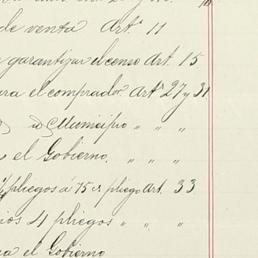 de venta Art.º 11
garantizar el censo Art. 15
para el comprador Art.s 27 y 31
id Municipio " " "
el Gobierno. " " "
pliegos á 75 cs pliego Art. 33
4 pliegos " " "
el Gobierno